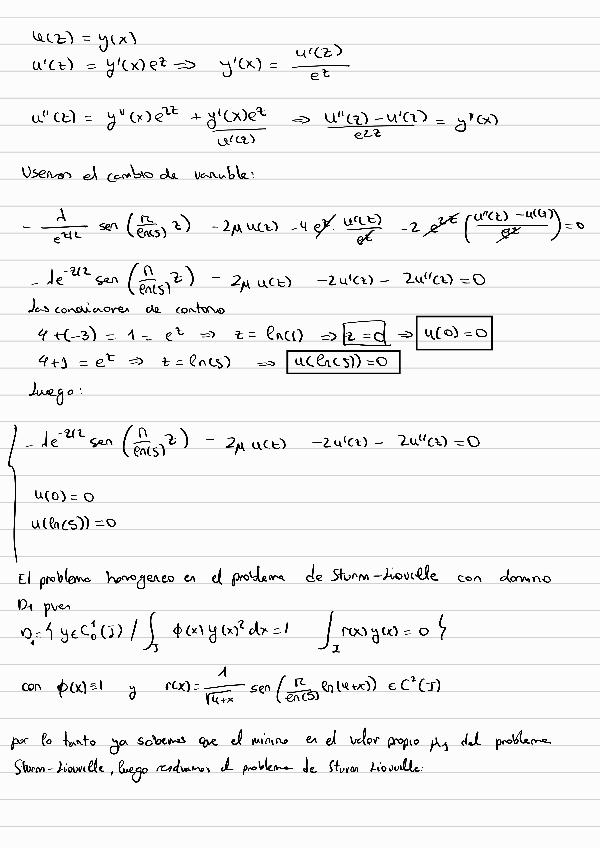 u(z) = y(x)
u'(z) = y'(x) e^z ⟹ y'(x) = u'(z)/e^z
u''(z) = y''(x) e^{2z} + y'(x) e^z ⟹ (u''(z) - u'(z))/e^{2z} = y''(x)
u'(z)
Usemos el cambio de variable:
- λ/e^{z/2} sen(π/ln(5) z) - 2μ u(z) - 4 e^z · u'(z)/e^z - 2 e^{2z} ((u''(z) - u'(z))/e^{2z}) = 0
- λe^{-z/2} sen(π/ln(5) z) - 2μ u(z) - 2u'(z) - 2u''(z) = 0
Las condiciones de contorno
4+(-3) = 1 = e^z ⟹ z = ln(1) ⟹ z = 0 ⟹ u(0) = 0
4+1 = e^z ⟹ z = ln(5) ⟹ u(ln(5)) = 0
Luego:
- λe^{-z/2} sen(π/ln(5) z) - 2μ u(z) - 2u'(z) - 2u''(z) = 0
u(0) = 0
u(ln(5)) = 0
El problema homogeneo es el problema de Sturm-Liouville con dominio
D₁ pues
D₁ = { y ∈ C₀¹(J) / ∫_J ϕ(x) y(x)² dx = 1 ∫_J r(x) y(x) = 0 }
con ϕ(x) ≡ 1 y r(x) = 1/√(4+x) sen(π/ln(5) ln(4+x)) ∈ C²(J)
por lo tanto ya sabemos que el minimo es el valor propio μ₁ del problema
Sturm-Liouville, luego resolvamos el problema de Sturm Liouville: